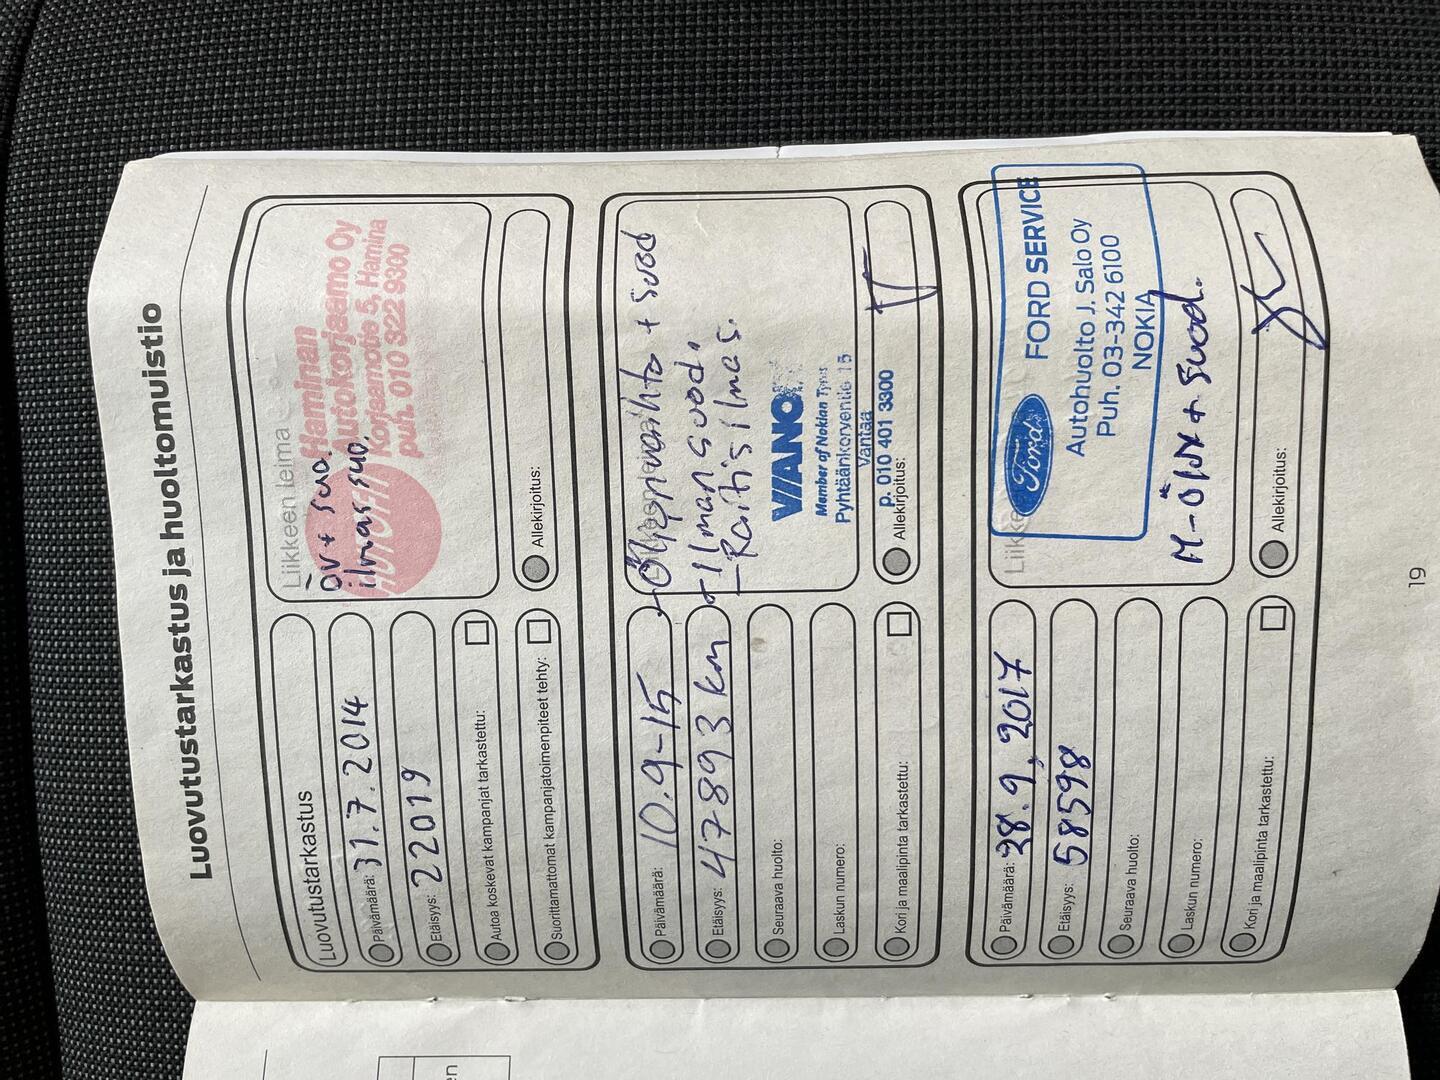 Luovutustarkastus ja huoltomuistio
Luovutustarkastus
Päivämäärä: 31.7.2014
Etäisyys: 22019
Autoa koskevat kampanjat tarkastettu:
Suorittamattomat kampanjatoimenpiteet tehty:
Liikkeen leima
Haminan
Autokorjaamo Oy
Korjaamotie 5, Hamina
puh. 010 322 9300
ÖV + suo.
ilmas.suo.
Allekirjoitus:
Päivämäärä: 10.9-15
Etäisyys: 47893 km
Seuraava huolto:
Laskun numero:
Kori ja maalipinta tarkastettu:
- Öljynvaihto + suod
- Ilmansuod.
- Raitisilmas.
VIANOR
Member of Nokian Tyres
Pyhtäänkorventie 13
Vantaa
p. 010 401 3300
Allekirjoitus:
Päivämäärä: 28.9.2017
Etäisyys: 58598
Seuraava huolto:
Laskun numero:
Kori ja maalipinta tarkastettu:
Liikke
Ford
FORD SERVICE
Autohuolto J. Salo Oy
Puh. 03-342 6100
NOKIA
M-ÖLJY + suod.
Allekirjoitus:
19
en